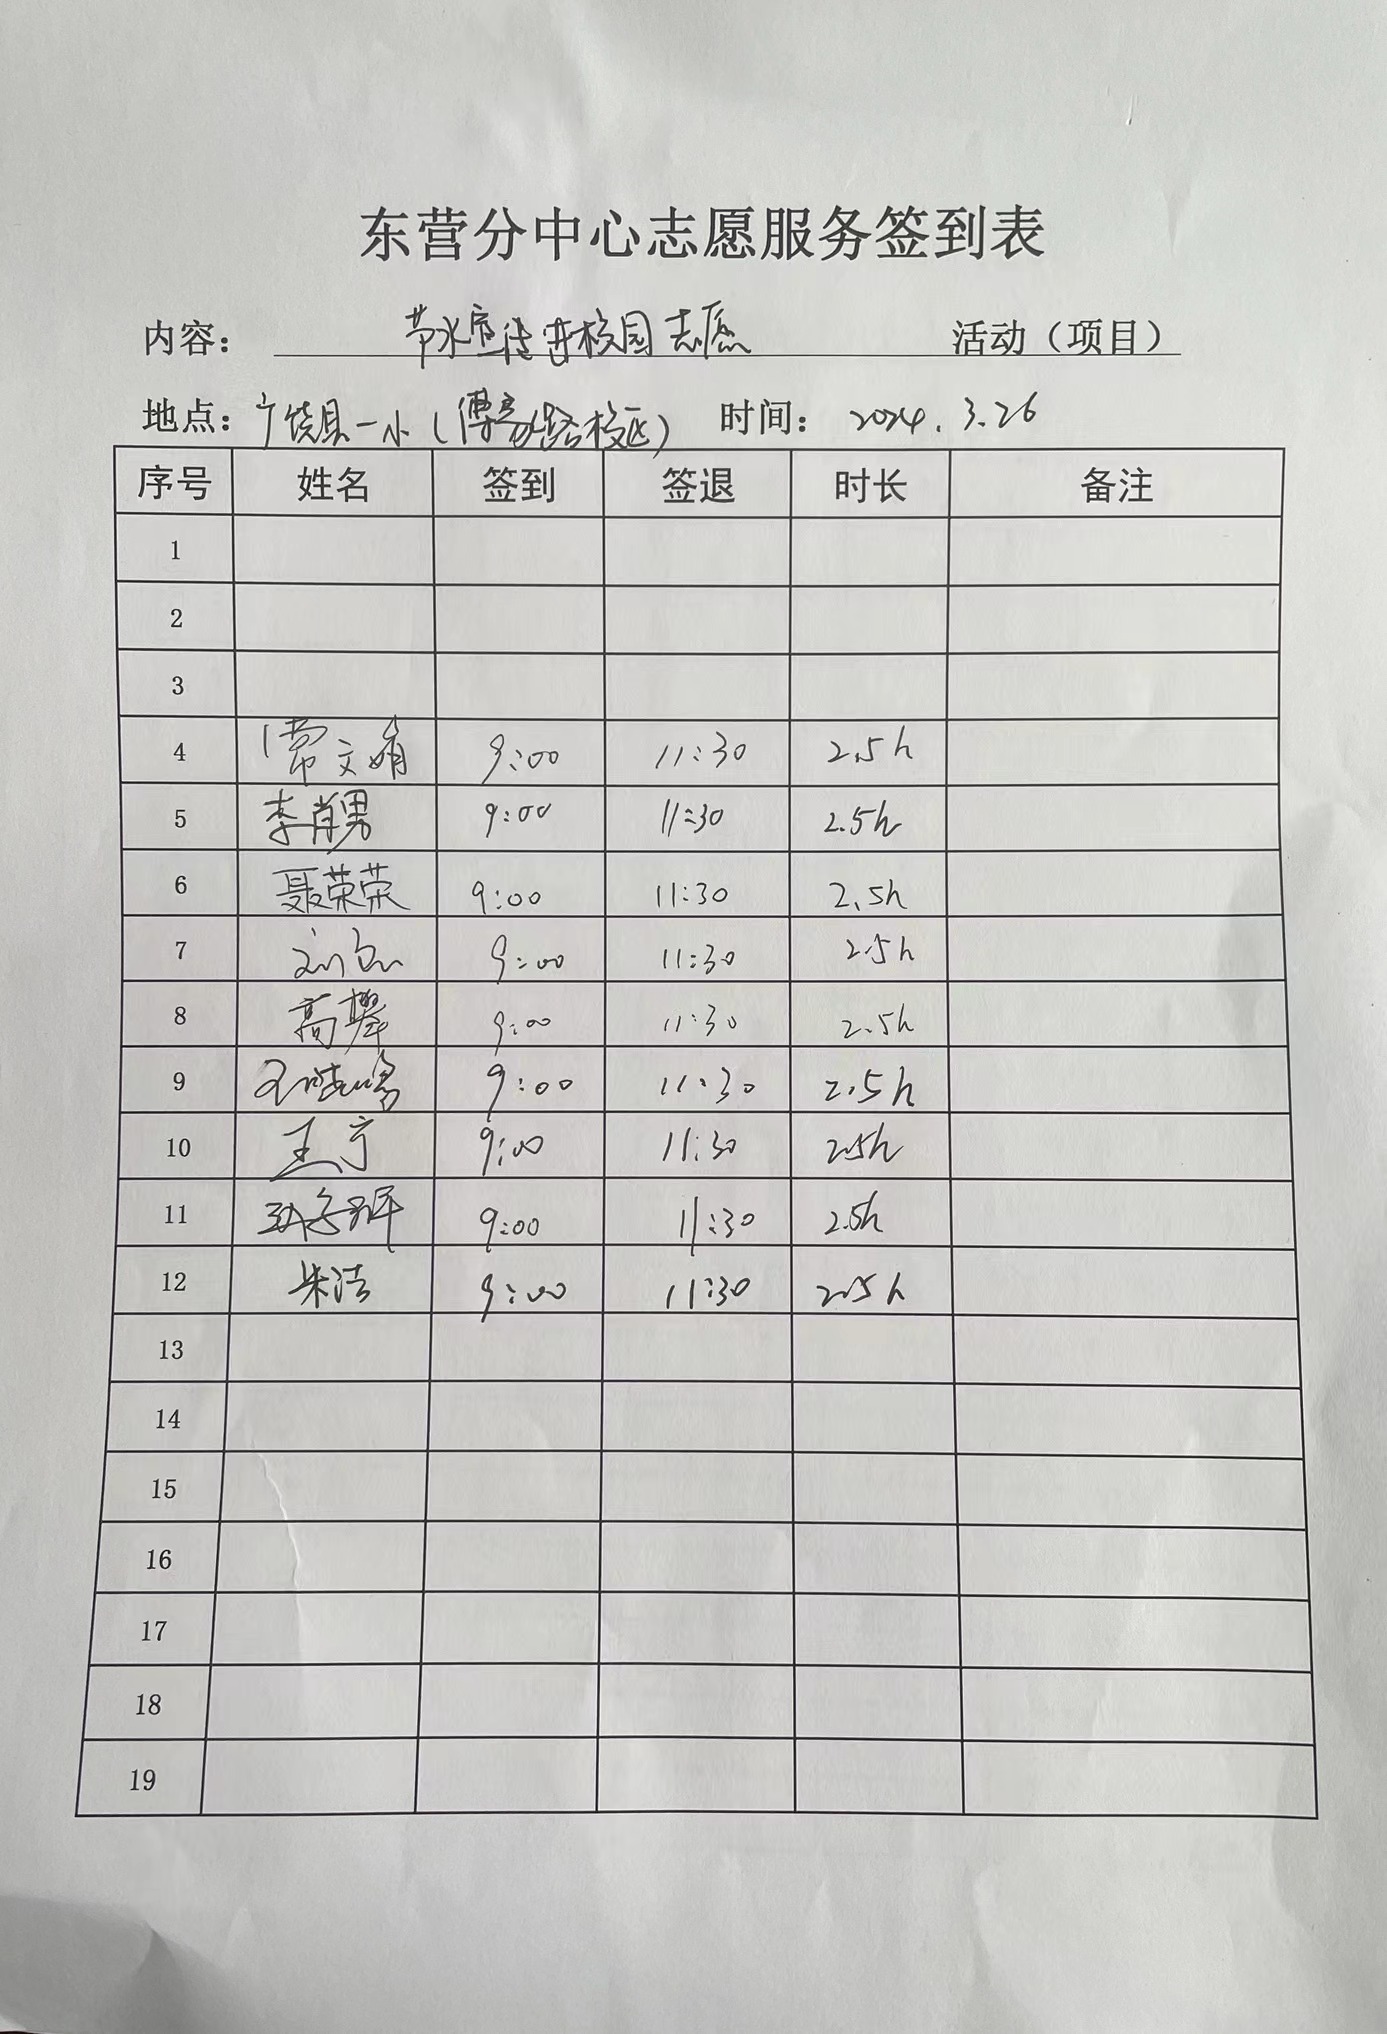 东营分中心志愿服务签到表
内容： 节水宣传进校园志愿 活动（项目）
地点：广饶县一小（傅家路校区） 时间： 2024.3.26
序号 姓名 签到 签退 时长 备注
1
2
3
4 常文娟 9:00 11:30 2.5h
5 李肖男 9:00 11:30 2.5h
6 聂荣荣 9:00 11:30 2.5h
7 9:00 11:30 2.5h
8 高攀 9:00 11:30 2.5h
9 9:00 11:30 2.5h
10 王宁 9:00 11:30 2.5h
11 9:00 11:30 2.5h
12 朱洁 9:00 11:30 2.5h
13
14
15
16
17
18
19